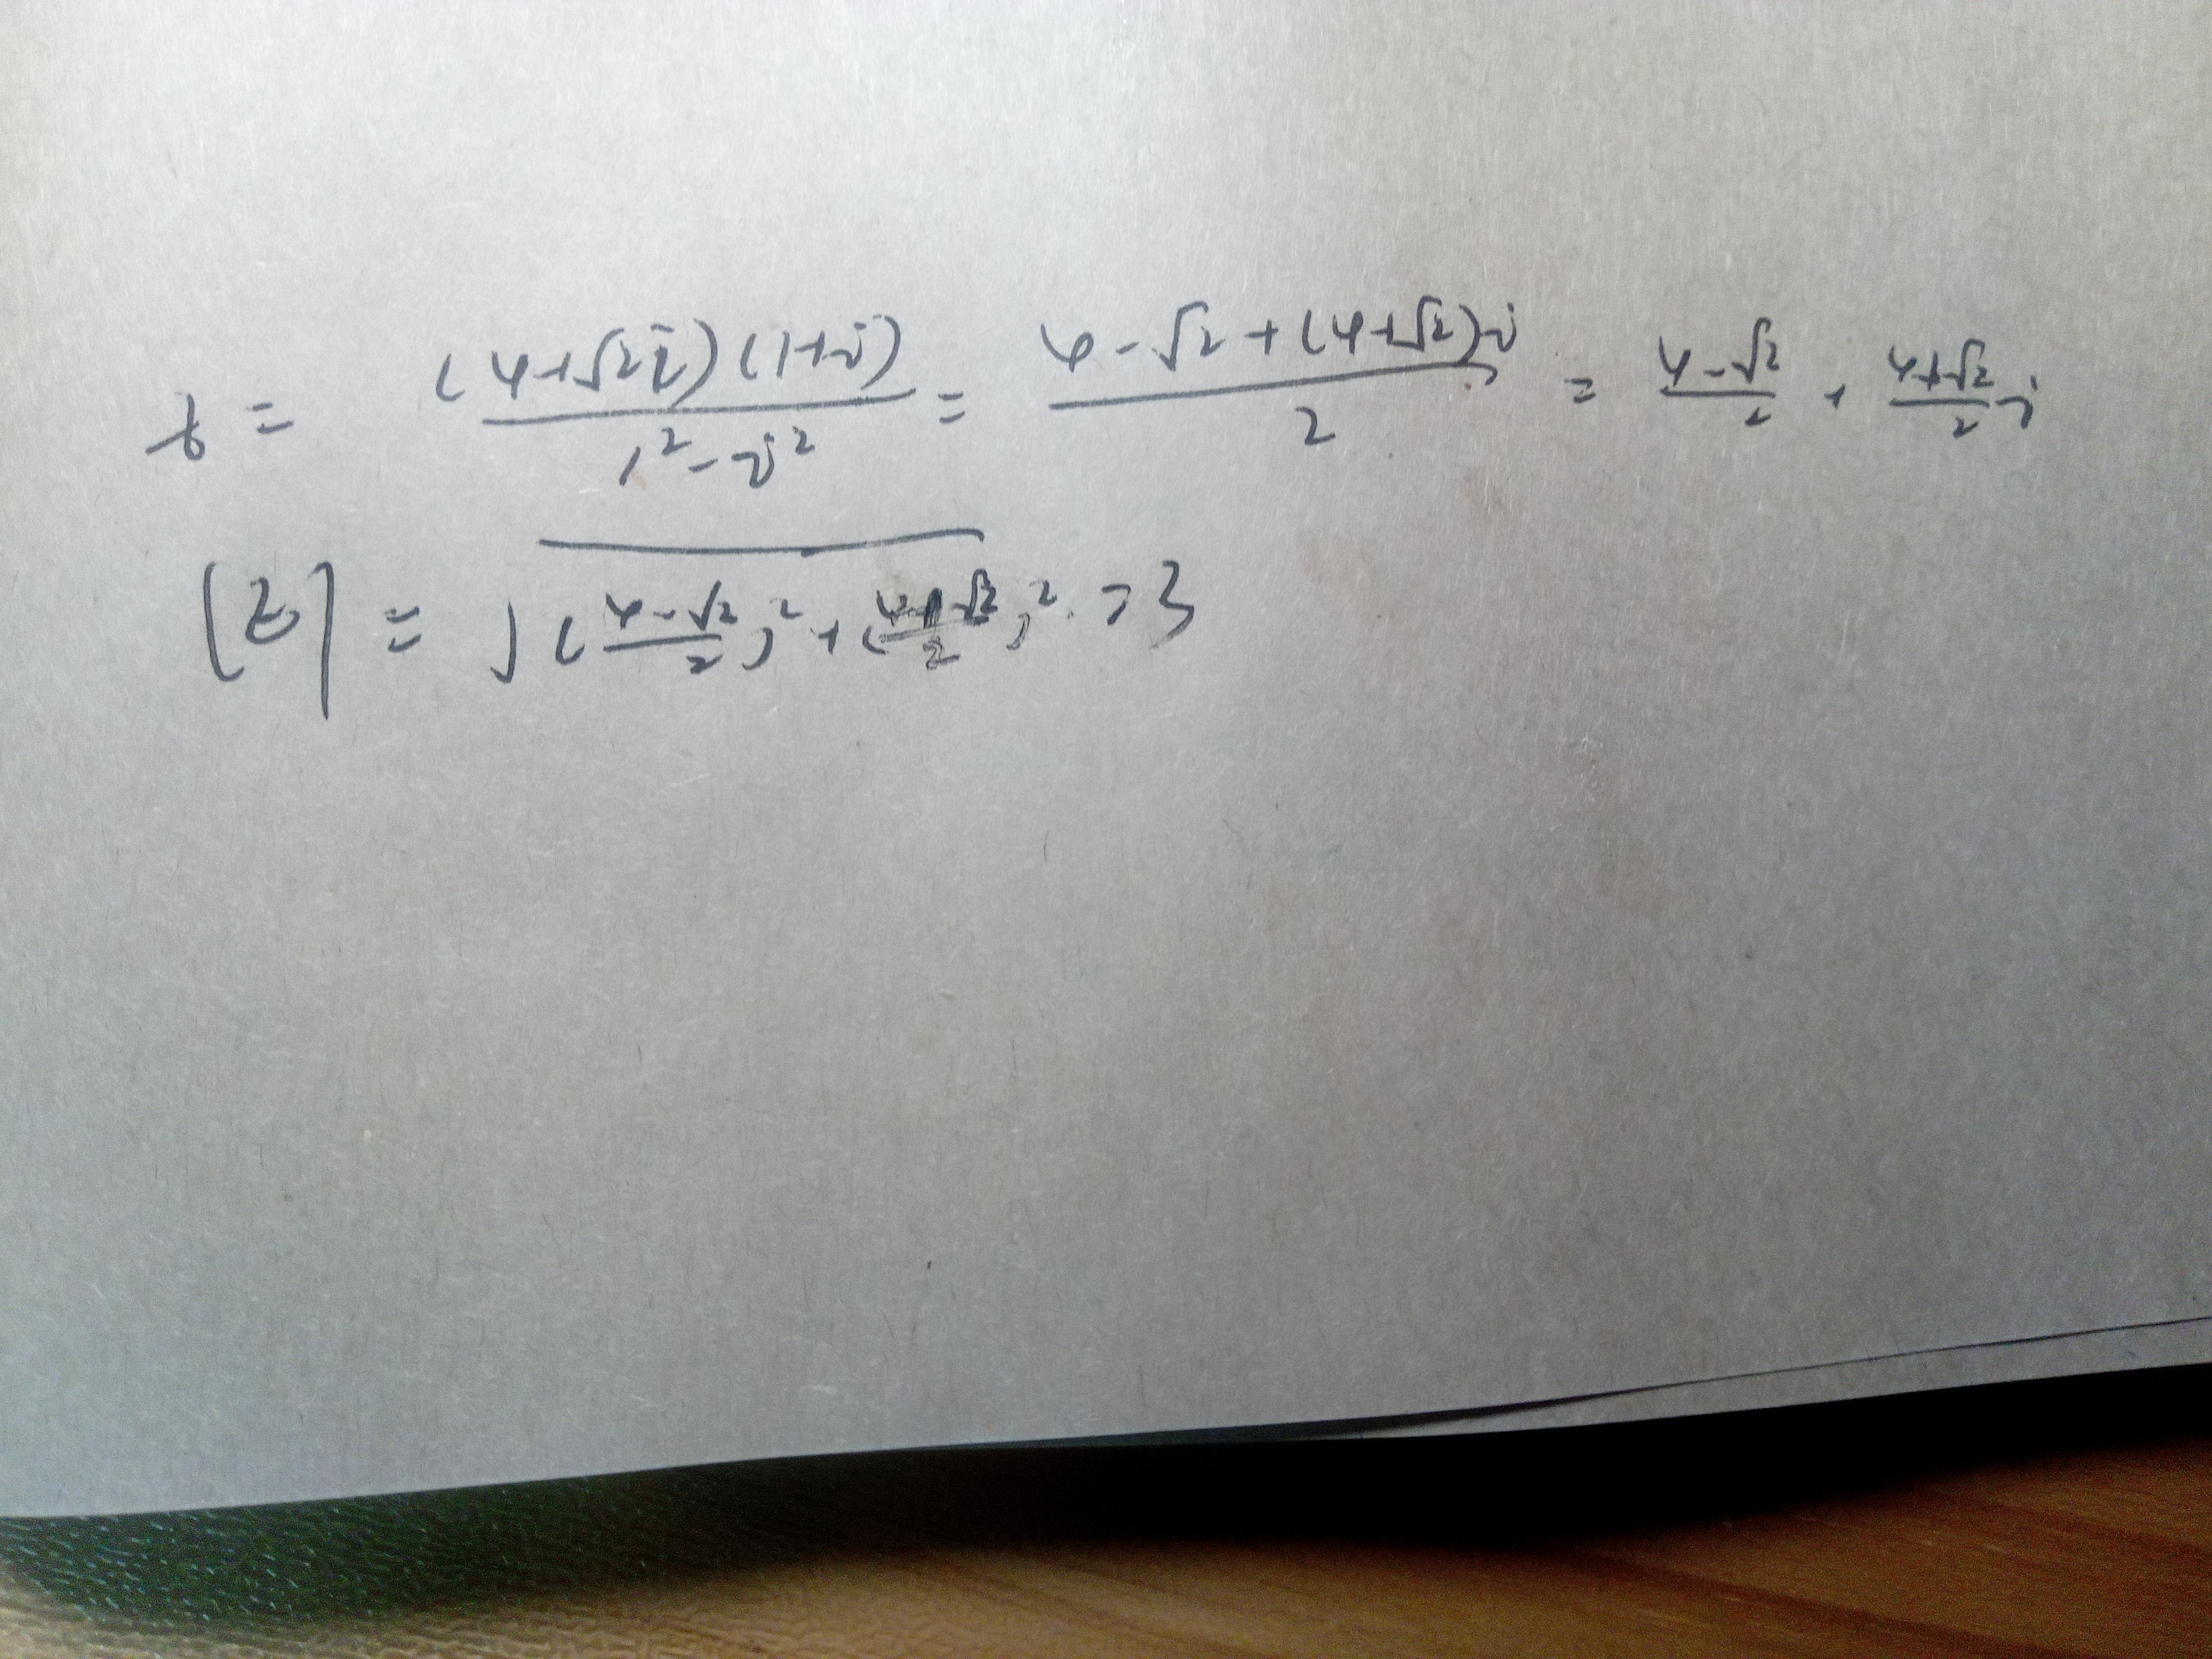 z = \frac{(4+\sqrt{2}i)(1+i)}{1^2-i^2} = \frac{4-\sqrt{2}+(4+\sqrt{2})i}{2} = \frac{4-\sqrt{2}}{2} + \frac{4+\sqrt{2}}{2}i
|z| = \sqrt{(\frac{4-\sqrt{2}}{2})^2+(\frac{4+\sqrt{2}}{2})^2} = 3